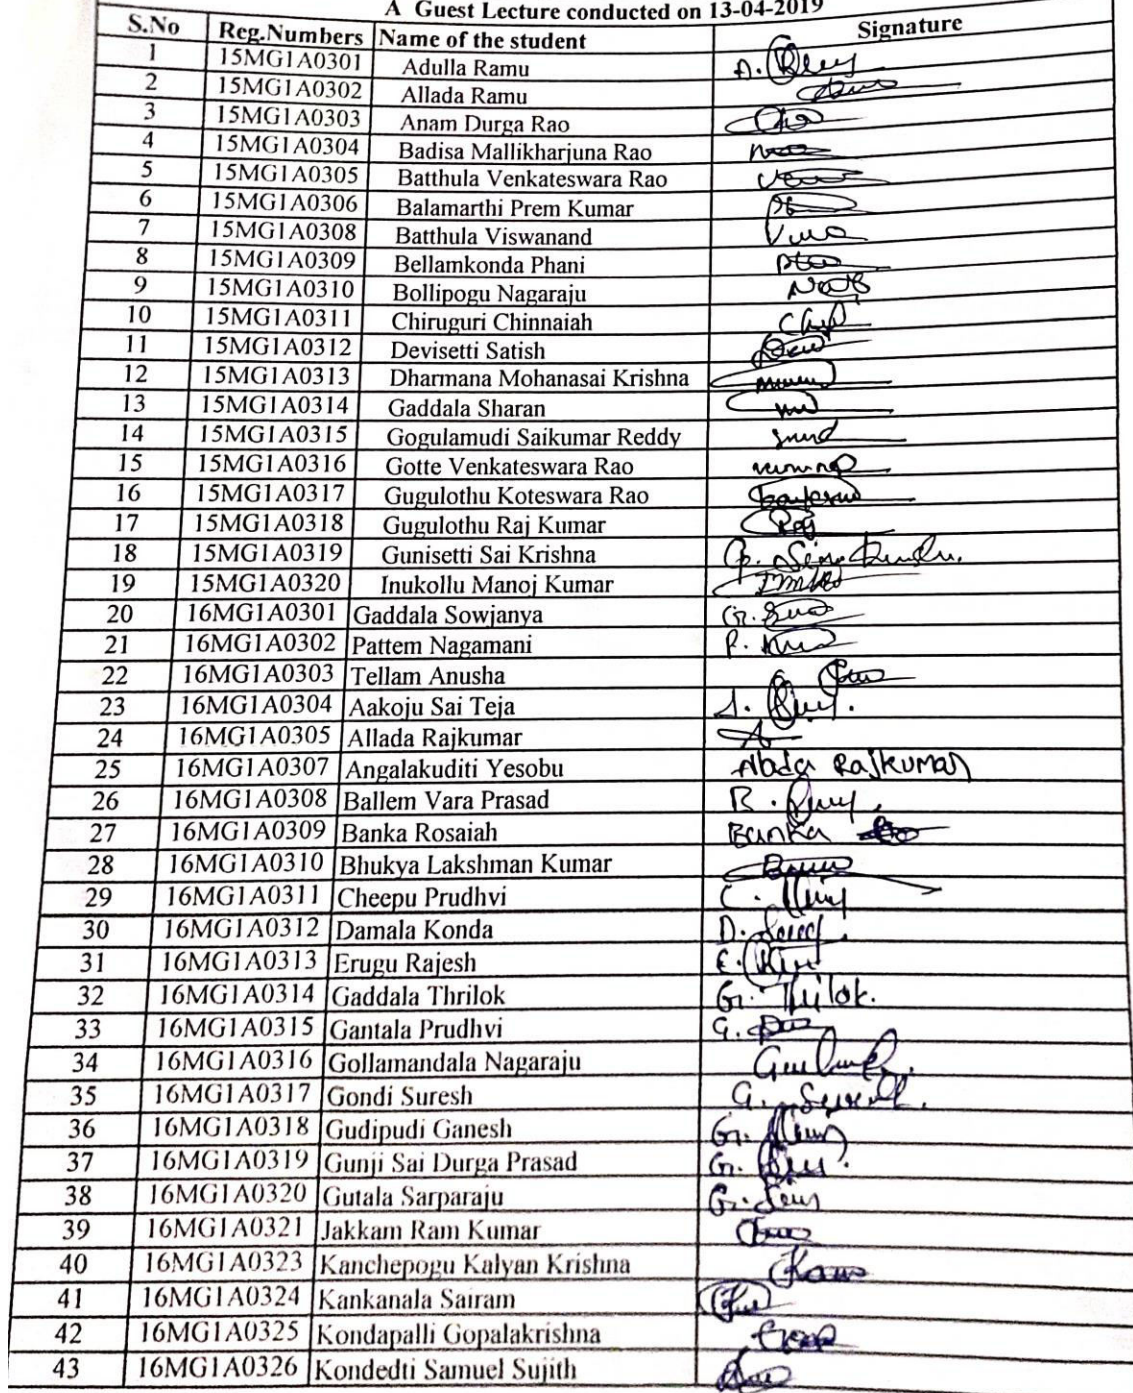 A Guest Lecture conducted on 13-04-2019
S.No Reg.Numbers Name of the student Signature
1 15MG1A0301 Adulla Ramu A.
2 15MG1A0302 Allada Ramu
3 15MG1A0303 Anam Durga Rao
4 15MG1A0304 Badisa Mallikharjuna Rao
5 15MG1A0305 Batthula Venkateswara Rao
6 15MG1A0306 Balamarthi Prem Kumar
7 15MG1A0308 Batthula Viswanand
8 15MG1A0309 Bellamkonda Phani
9 15MG1A0310 Bollipogu Nagaraju
10 15MG1A0311 Chiruguri Chinnaiah
11 15MG1A0312 Devisetti Satish
12 15MG1A0313 Dharmana Mohanasai Krishna
13 15MG1A0314 Gaddala Sharan
14 15MG1A0315 Gogulamudi Saikumar Reddy
15 15MG1A0316 Gotte Venkateswara Rao
16 15MG1A0317 Gugulothu Koteswara Rao
17 15MG1A0318 Gugulothu Raj Kumar Raj
18 15MG1A0319 Gunisetti Sai Krishna G.
19 15MG1A0320 Inukollu Manoj Kumar
20 16MG1A0301 Gaddala Sowjanya G.
21 16MG1A0302 Pattem Nagamani P.
22 16MG1A0303 Tellam Anusha
23 16MG1A0304 Aakoju Sai Teja
24 16MG1A0305 Allada Rajkumar
25 16MG1A0307 Angalakuditi Yesobu Rajkumar
26 16MG1A0308 Ballem Vara Prasad
27 16MG1A0309 Banka Rosaiah Banka
28 16MG1A0310 Bhukya Lakshman Kumar
29 16MG1A0311 Cheepu Prudhvi C.
30 16MG1A0312 Damala Konda D.
31 16MG1A0313 Erugu Rajesh E.
32 16MG1A0314 Gaddala Thrilok G. Thrilok.
33 16MG1A0315 Gantala Prudhvi G.
34 16MG1A0316 Gollamandala Nagaraju
35 16MG1A0317 Gondi Suresh G. Suresh.
36 16MG1A0318 Gudipudi Ganesh G.
37 16MG1A0319 Gunji Sai Durga Prasad G.
38 16MG1A0320 Gutala Sarparaju G.
39 16MG1A0321 Jakkam Ram Kumar
40 16MG1A0323 Kanchepogu Kalyan Krishna
41 16MG1A0324 Kankanala Sairam
42 16MG1A0325 Kondapalli Gopalakrishna
43 16MG1A0326 Kondedti Samuel Sujith